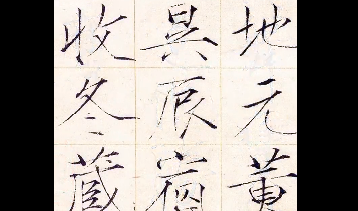 地元黄
昃辰宿
收冬藏